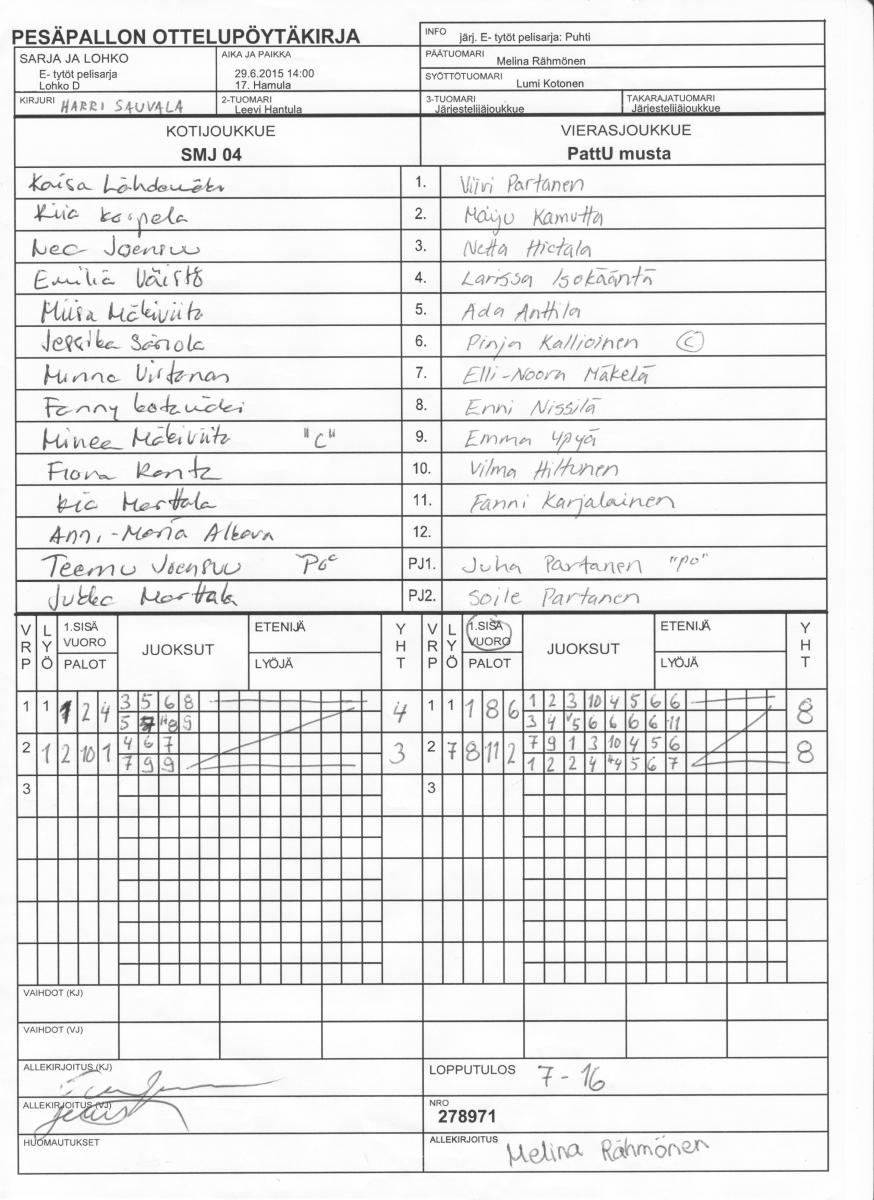 PESÄPALLON OTTELUPÖYTÄKIRJA
INFO järj. E- tytöt pelisarja: Puhti
SARJA JA LOHKO
E- tytöt pelisarja
Lohko D
AIKA JA PAIKKA
29.6.2015 14:00
17. Hamula
PÄÄTUOMARI Melina Rähmönen
SYÖTTÖTUOMARI Lumi Kotonen
KIRJURI HARRI SAUVALA
2-TUOMARI Leevi Hantula
3-TUOMARI Järjestelijäjoukkue
TAKARAJATUOMARI Järjestelijäjoukkue
KOTIJOUKKUE
SMJ 04
VIERASJOUKKUE
PattU musta
Kaisa Lähdemäki 1. Viivi Partanen
Kiia Korpela 2. Maiju Kamutta
Nea Joensuu 3. Netta Hietala
Emilia Väistö 4. Larissa Isokääntä
Miisa Mäkiviita 5. Ada Anttila
Jessika Sariola 6. Pinja Kallioinen C
Minna Virtanen 7. Elli-Noora Mäkelä
Fanny 8. Enni Nissilä
Minea Mäkiviita "C" 9. Emma Ypyä
Fiona Rantz 10. Vilma Hiltunen
Kia Marttala 11. Fanni Karjalainen
Anni-Maria 12.
Teemu Joensuu "Po" PJ1. Juha Partanen "po"
Jukka Marttala PJ2. Soile Partanen
VRP LYÖ 1.SISÄ VUORO PALOT JUOKSUT ETENIJÄ LYÖJÄ YHT VRP LYÖ 1.SISÄ VUORO PALOT JUOKSUT ETENIJÄ LYÖJÄ YHT
1 1 1 2 4 3 5 6 8 4 1 1 1 8 6 1 2 3 10 4 5 6 6 8
5 7 H8 9 3 4 V5 6 6 6 6 11
2 1 2 10 1 4 6 7 3 2 7 8 11 2 7 9 1 3 10 4 5 6 8
7 9 9 1 2 2 4 4 5 6 7
3 3
VAIHDOT (KJ)
VAIHDOT (VJ)
ALLEKIRJOITUS (KJ)
LOPPUTULOS 7 - 16
ALLEKIRJOITUS (VJ)
NRO
278971
HUOMAUTUKSET
ALLEKIRJOITUS Melina Rähmönen